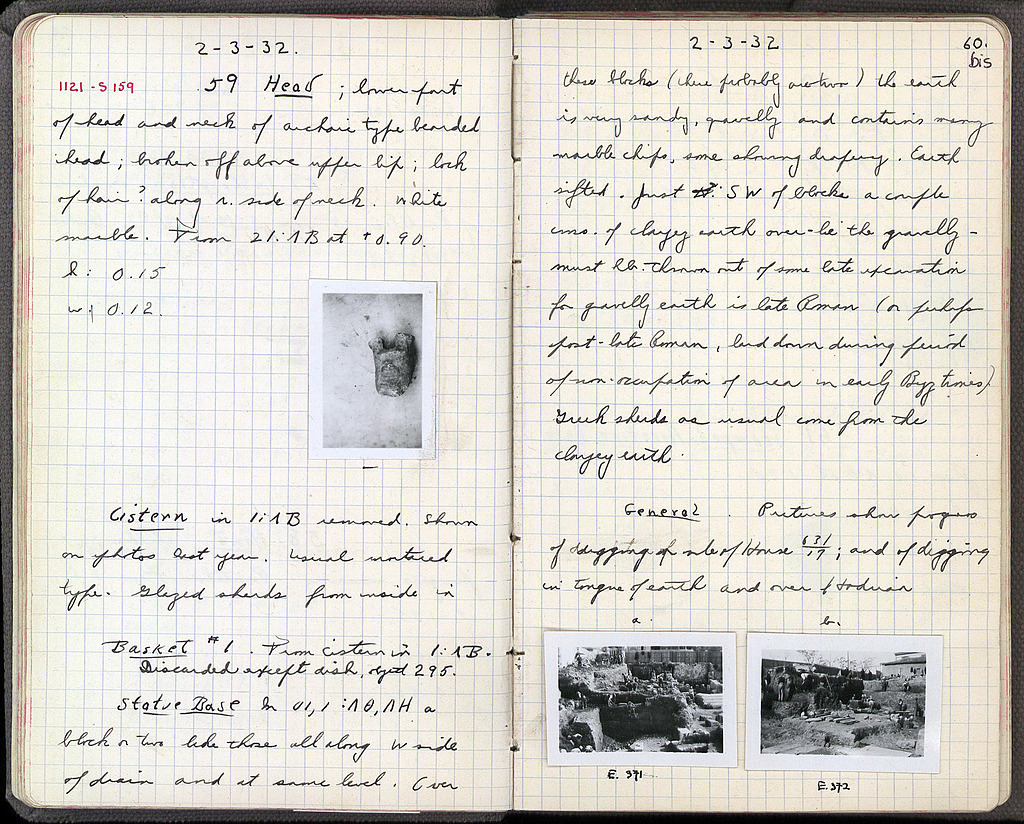 2-3-32.
1121-S 159
59 Head ; lower part
of head and neck of archaic type bearded
head ; broken off above upper lip ; lock
of hair? along r. side of neck. White
marble. From 21:ΛB at +0.90.
l: 0.15
w: 0.12.
Cistern in 1:ΛB removed. Shown
on photos last year. Usual mortared
type. Glazed sherds from inside in
Basket #1. From cistern in 1:ΛB.
Discarded except dish, 295.
Statue Base In 01,1 :ΛΘ,ΛH a
block or two like those all along W side
of drain and at same level. Over
2-3-32
60.
bis
these blocks (there probably are two) the earth
is very sandy, gravelly and contains many
marble chips, some showing drapery. Earth
sifted. Just SW of blocks a couple
cms. of clayey earth over-lie the gravelly -
must be thrown out of some late excavation
for gravelly earth is late Roman (or perhaps
post-late Roman, laid down during period
of non-occupation of area in early Byz times)
Greek sherds as usual come from the
clayey earth.
General. Pictures show progress
of digging of side of House 631/17; and of digging
in tongue of earth and over
a.
b.
E. 371
E. 372